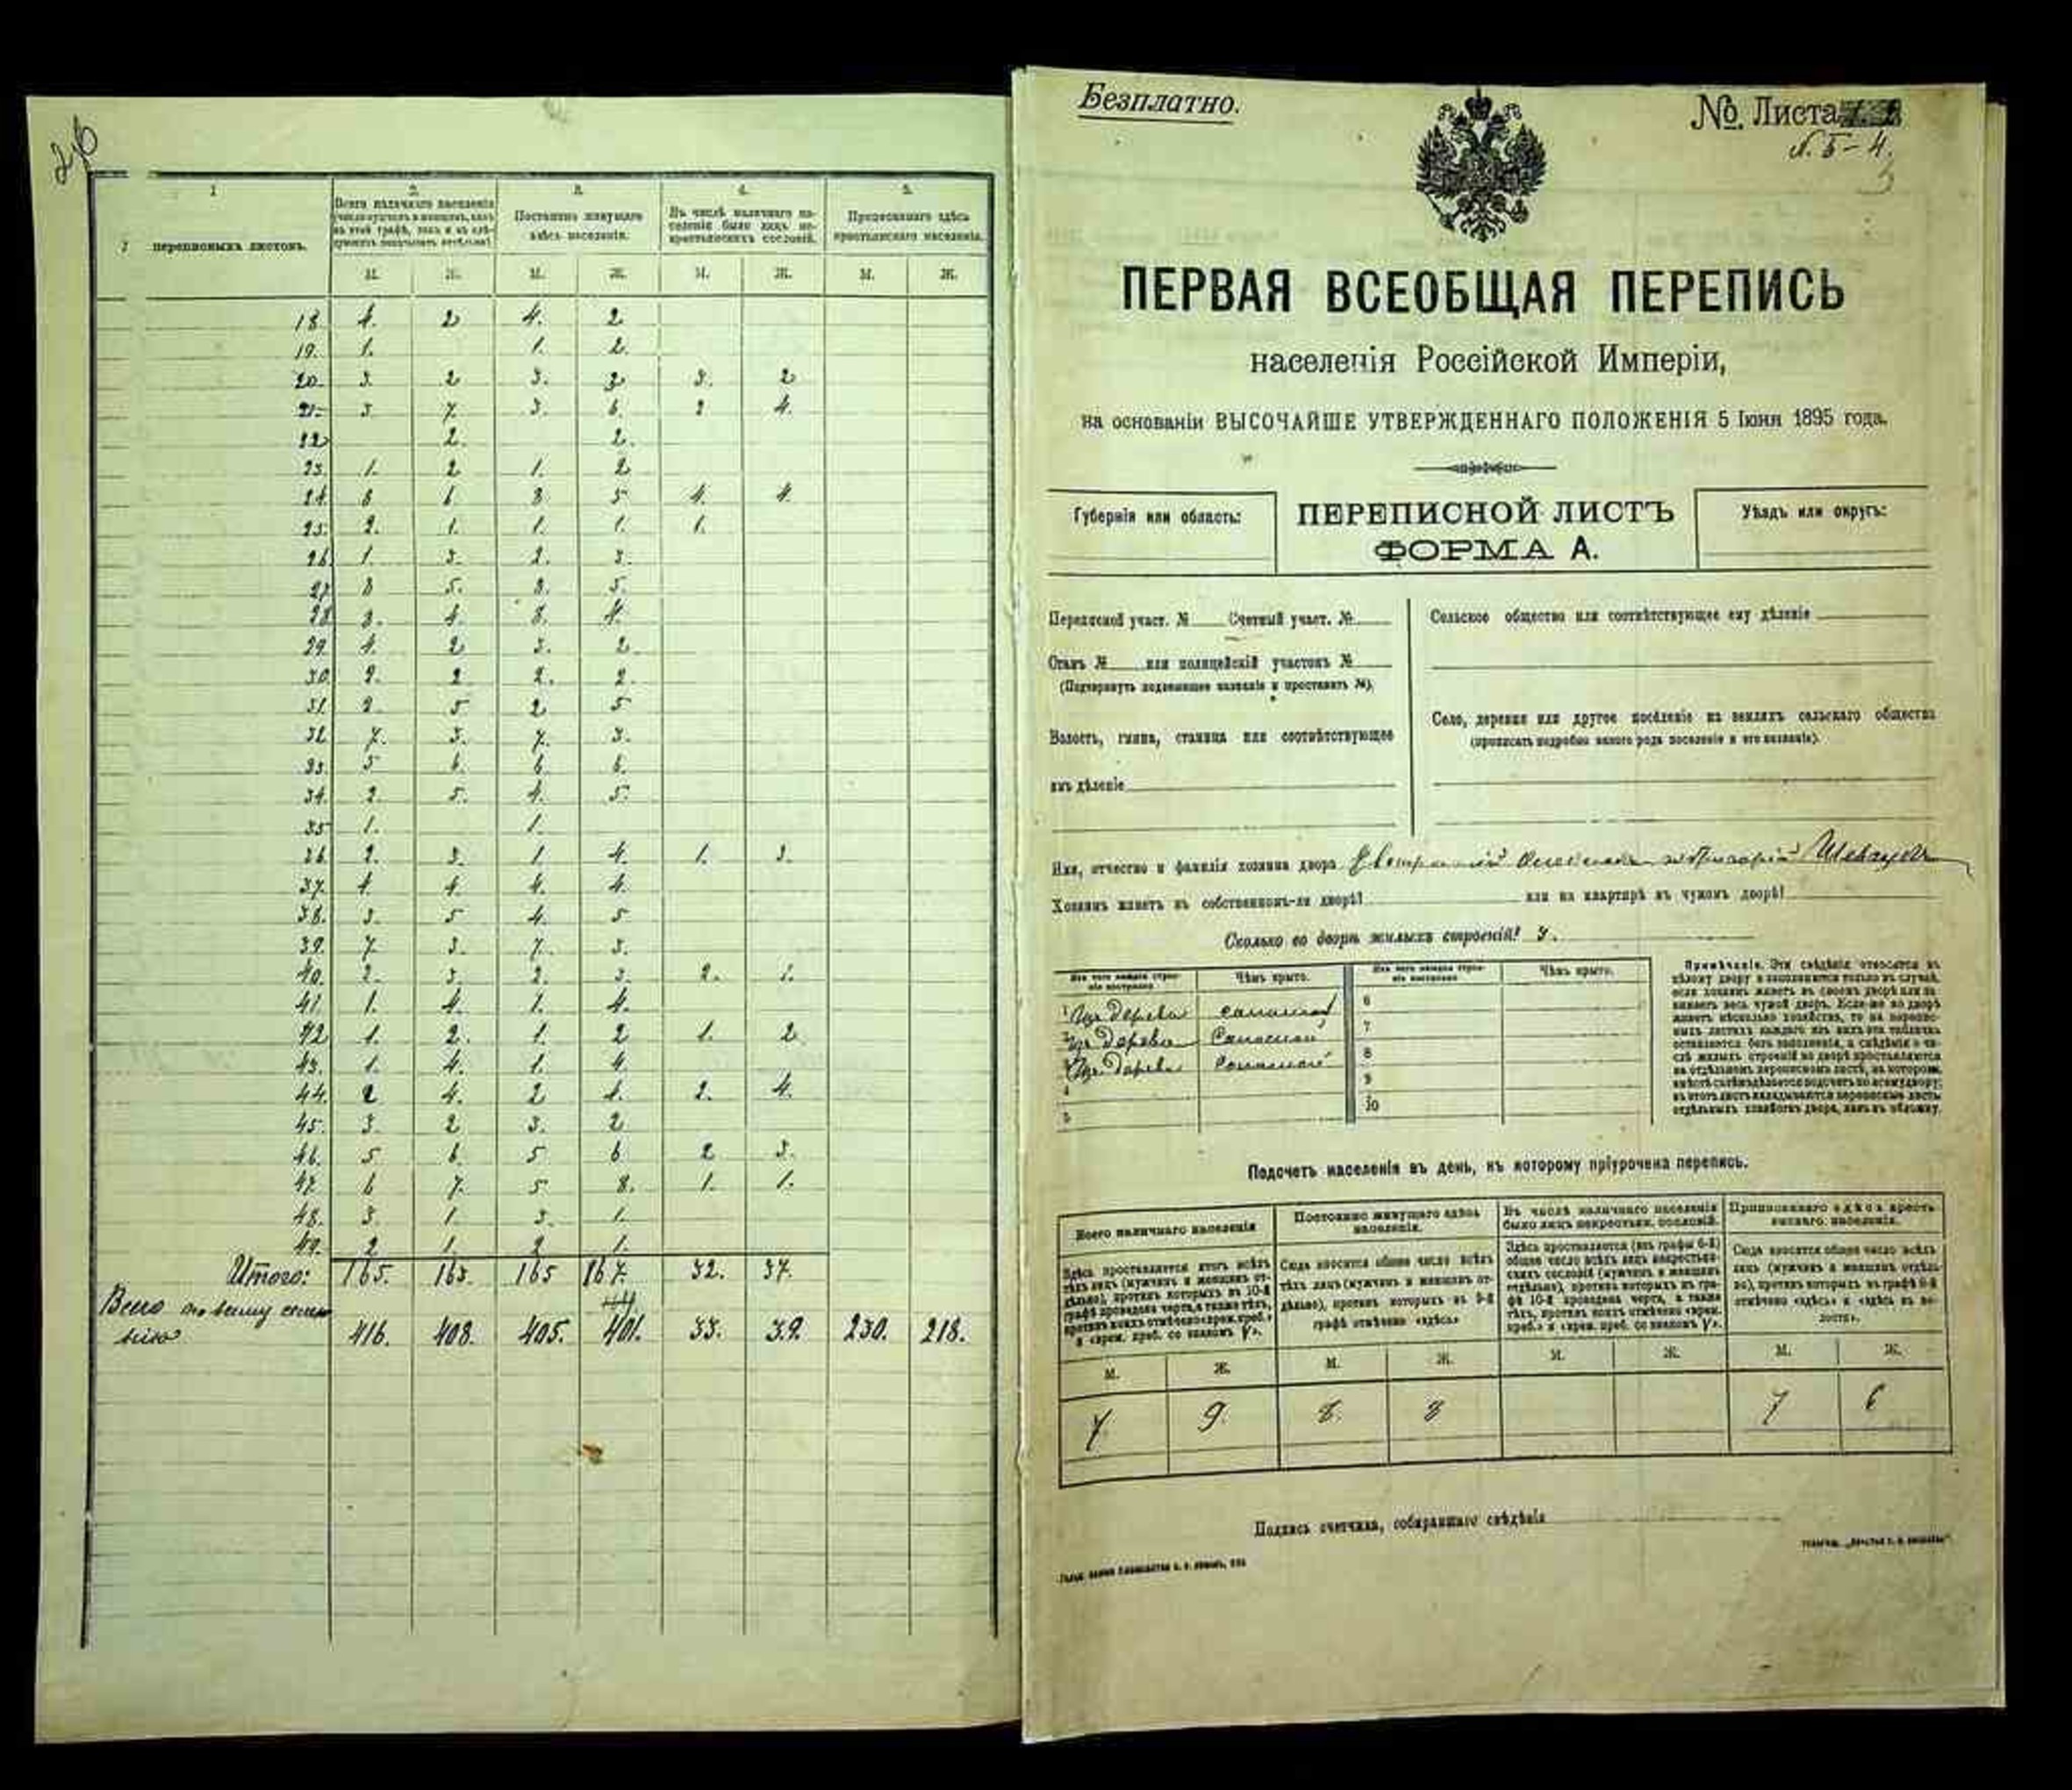 1
2.
3.
4.
5.
переписныхъ листовъ.
Всего наличнаго населенія
Постоянно живущаго здѣсь населенія.
Въ числѣ наличнаго населенія было лицъ некрестьянскихъ сословій.
Приписаннаго здѣсь крестьянскаго населенія.
М. Ж. М. Ж. М. Ж. М. Ж.
18. 4. 2 4. 2
19. 1. 1. 2.
20. 3. 2 3. 2 3. 2
21. 3 7. 3. 6. 2 4.
22 2. 2.
23. 1. 2 1. 2
24. 6 5 4. 4.
25. 2. 1. 1. 1. 1.
26. 1. 3. 2. 3.
27. 5. 5.
28. 3. 4. 4.
29. 4. 2 3. 2.
30. 2. 2 2. 2.
31. 2. 5 2 5
32 7. 3. 7. 3.
33. 5 6. 6 6.
34. 2. 5. 4. 5.
35 1. 1.
36. 2. 3. 1 4. 1. 3.
37. 4. 4. 4. 4.
38. 3. 5 4. 5
39. 7. 3. 7. 3.
40. 2. 3. 2. 3. 2. 1.
41. 1. 4. 1. 4.
42 1. 2. 1. 2 1. 2
43. 1. 4. 1. 4.
44. 2 4. 2 4. 2. 4.
45. 3. 2 3. 2
46. 5 6. 5 6 2 3.
47. 6 7. 5 8. 1. 1.
48. 3. 1. 3. 1.
49. 2. 1. 2 1.
Итого: 165. 163. 165 167. 32. 37.
Всего по всему селе
416. 408. 405. 401. 33. 39. 230. 218.
Безплатно.
№ Листа
ПЕРВАЯ ВСЕОБЩАЯ ПЕРЕПИСЬ
населенія Россійской Имперіи,
на основаніи ВЫСОЧАЙШЕ УТВЕРЖДЕННАГО ПОЛОЖЕНІЯ 5 Іюня 1895 года.
Губернія или область:
ПЕРЕПИСНОЙ ЛИСТЪ
ФОРМА А.
Уѣздъ или округъ:
Переписной участ. № Счетный участ. №
Станъ № или полицейскій участокъ №
(Подчеркнуть подлежащее названіе и проставить №).
Волость, гмина, станица или соотвѣтствующее
имъ дѣленіе
Сельское общество или соотвѣтствующее ему дѣленіе
Село, деревня или другое поселеніе на земляхъ сельскаго общества
(прописать подробно какого рода поселеніе и его названіе).
Имя, отчество и фамилія хозяина двора
Хозяинъ живетъ въ собственномъ-ли дворѣ? или на квартирѣ въ чужомъ дворѣ?
Сколько во дворѣ жилыхъ строеній? 3.
Изъ чего каждое строеніе построено
Чѣмъ крыто.
Изъ чего каждое строеніе построено
Чѣмъ крыто.
1 Изъ дерева соломой 6
2 Изъ дерева Соломой 7
3 Изъ дерева Соломой 8
4 9
5 10
Примѣчаніе. Эти свѣдѣнія относятся къ
цѣлому двору и заполняются только въ случаѣ,
если хозяинъ живетъ въ своемъ дворѣ или занимаетъ
весь чужой дворъ. Если-же во дворѣ
живетъ нѣсколько хозяйствъ, то на переписныхъ
листахъ каждаго изъ нихъ эта табличка
оставляется безъ заполненія, а свѣдѣнія о числѣ
жилыхъ строеній во дворѣ проставляются
на отдѣльномъ переписномъ листѣ, на которомъ
вмѣстѣ съ тѣмъ дѣлается подсчетъ по всему двору;
въ этотъ листъ вкладываются переписные листы
отдѣльныхъ хозяйствъ двора, какъ въ обложку.
Подсчетъ населенія въ день, къ которому пріурочена перепись.
Всего наличнаго населенія
Постоянно живущаго здѣсь населенія.
Въ числѣ наличнаго населенія было лицъ некрестьян. сословій.
Приписаннаго здѣсь крестьянскаго населенія.
Здѣсь проставляется итогъ всѣхъ тѣхъ лицъ (мужчинъ и женщинъ отдѣльно), противъ которыхъ въ 10-й графѣ проведена черта, а также тѣхъ, противъ коихъ отмѣчено «врем. преб.» и «врем. преб. со знакомъ V».
Сюда вносится общее число всѣхъ тѣхъ лицъ (мужчинъ и женщинъ отдѣльно), противъ которыхъ въ 9-й графѣ отмѣчено «здѣсь»
Здѣсь проставляется (изъ графы 6-й) общее число всѣхъ лицъ некрестьянскихъ сословій (мужчинъ и женщинъ отдѣльно), противъ которыхъ въ графѣ 10-й проведена черта, а также тѣхъ, противъ коихъ отмѣчено «врем. преб.» и «врем. преб. со знакомъ V».
Сюда вносится общее число всѣхъ лицъ (мужчинъ и женщинъ отдѣльно), противъ которыхъ въ графѣ 8-й отмѣчено «здѣсь» и «здѣсь въ волости».
М. Ж. М. Ж. М. Ж. М. Ж.
7 9. 8. 8 7 6
Подпись счетчика, собиравшаго свѣдѣнія